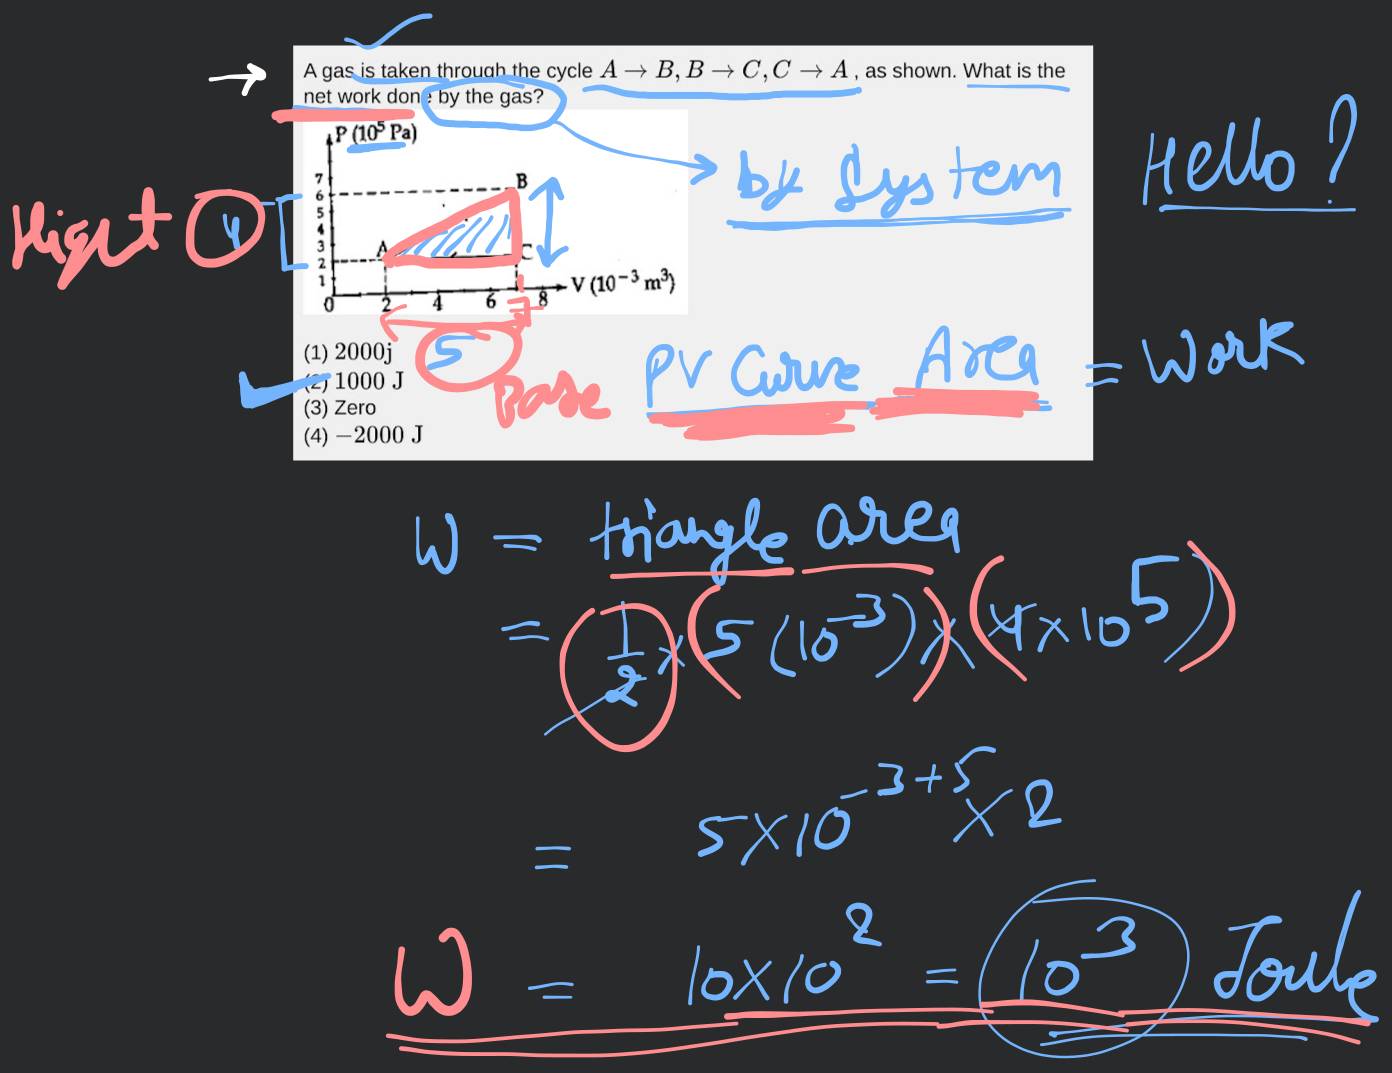 A gas is taken through the cycle A → B, B → C, C → A , as shown. What is the
net work done by the gas?
P (10⁵ Pa)
7
6
5
4
3
2
1
0
2
4
6
8
A
B
C
V (10⁻³ m³)
7
Hight 4
by System
Hello?
(1) 2000j
(2) 1000 J
(3) Zero
(4) −2000 J
5
Base
PV Curve Area = Work
W = triangle area
= 1/2 × (5 (10⁻³)) × (4 × 10⁵)
= 5×10⁻³⁺⁵ × 2
W = 10×10² = 10³ Joule